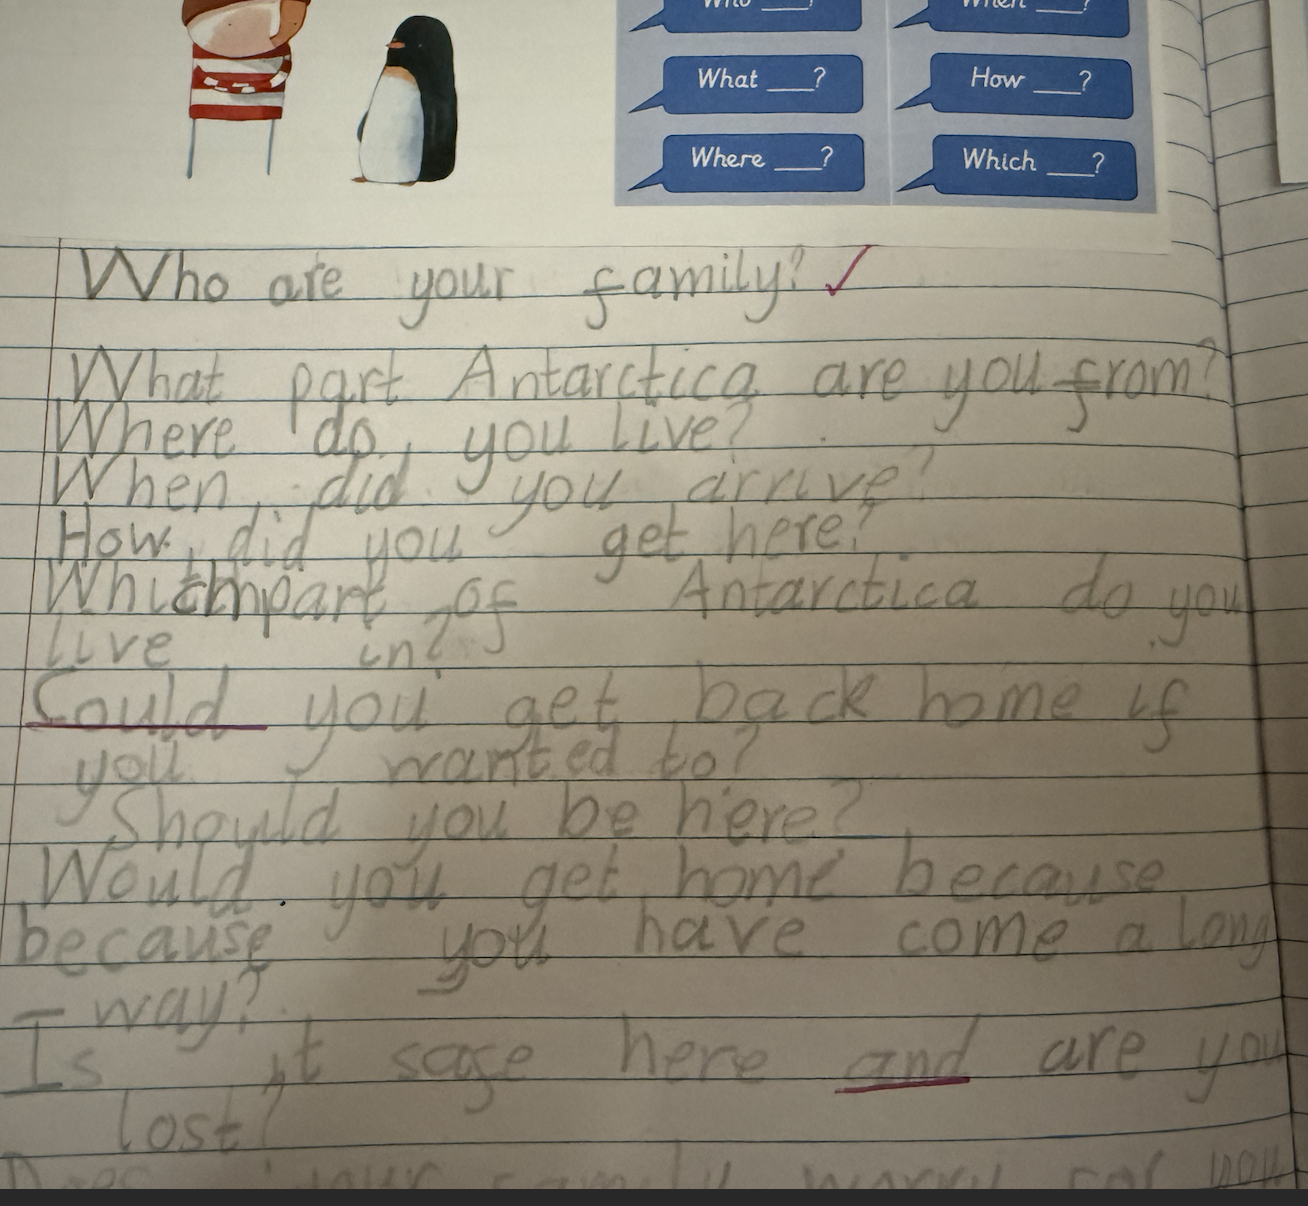 Who ___?
When ___?
What ___?
How ___?
Where ___?
Which ___?
Who are your family?
What part Antarctica are you from?
Where do you live?
When did you arrive?
How did you get here?
Which part of Antarctica do you
live in?
Could you get back home if
you wanted to?
Should you be here?
Would you get home because
because you have come a long
way?
Is it safe here and are you
lost?
Does your family worry for you